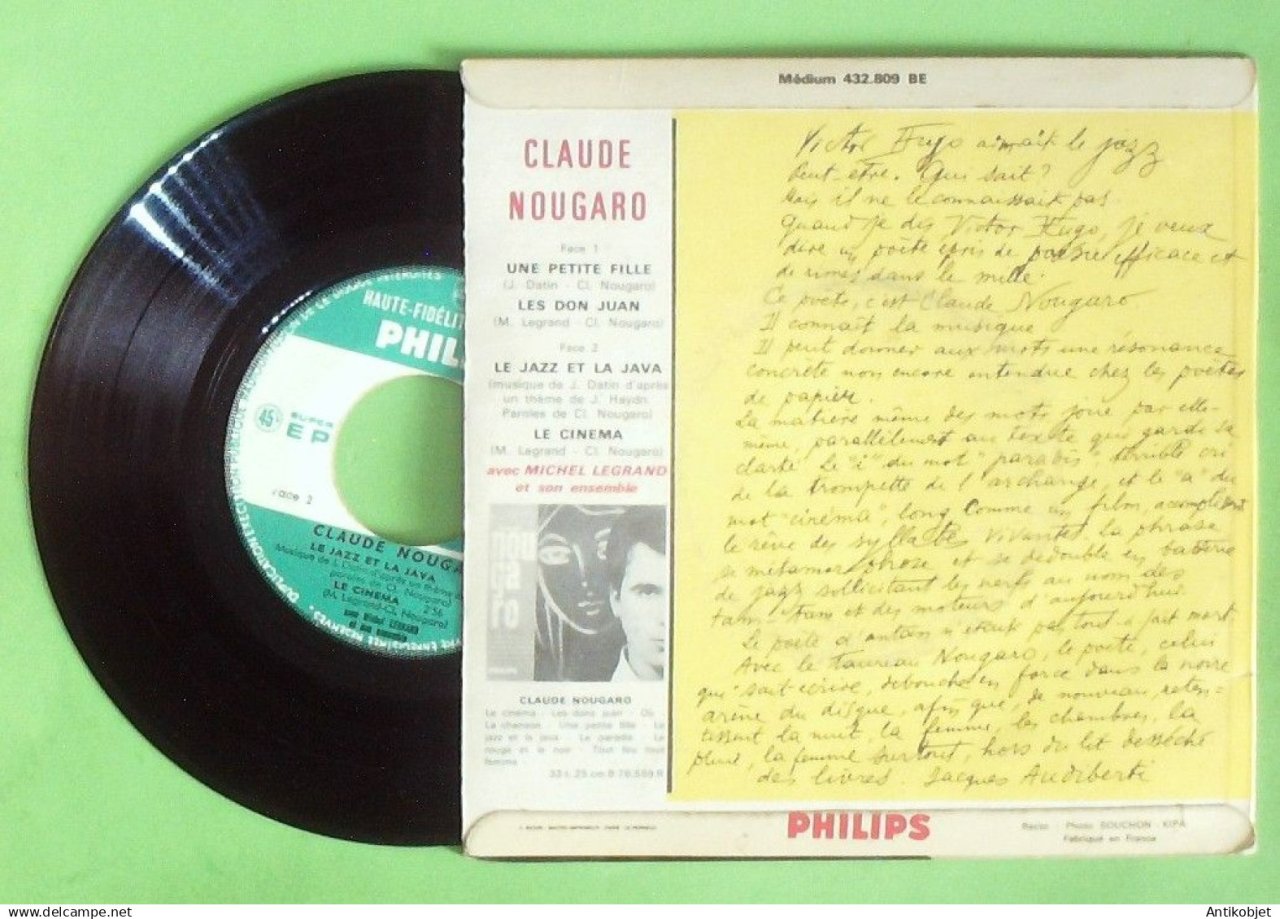 Médium 432.809 BE
CLAUDE
NOUGARO
Face 1
UNE PETITE FILLE
(J. Datin - Cl. Nougaro)
LES DON JUAN
(M. Legrand - Cl. Nougaro)
Face 2
LE JAZZ ET LA JAVA
(musique de J. Datin d'après
un thème de J. Haydn.
Paroles de Cl. Nougaro)
LE CINEMA
(M. Legrand - Cl. Nougaro)
avec MICHEL LEGRAND
et son ensemble
nou
ga
ro
CLAUDE NOUGARO
Le cinéma - Les dons juan - Où
La chanson - Une petite fille - Le
jazz et la java - Le paradis - Le
rouge et le noir - Tout feu tout
femme -
33 t. 25 cm B 76.559 R
Victor Hugo aimait le jazz
Peut-être. Qui sait ?
Mais il ne le connaissait pas.
Quand je dis Victor Hugo, je veux
dire un poète épris de poésie efficace et
de rimes dans le mille.
Ce poète, c'est Claude Nougaro
Il connaît la musique
Il peut donner aux mots une résonance
concrète non encore entendue chez les poètes
de papier.
La matière même des mots joue par elle-
même, parallèlement au texte qui garde sa
clarté. Le "i" du mot "paradis" terrible cri
de la trompette de l'archange, et le "a" du
mot "cinéma", long comme un film, accomplissent
le rêve des syllabes vivantes, la phrase
se métamorphose et se dédouble en batterie
de jazz sollicitant les nerfs au nom des
tam-tams et des moteurs d'aujourd'hui
Le poète d'antan n'était pas tout à fait mort.
Avec le taureau Nougaro, le poète, celui
qui sait écrire, débouche en force dans la noire
arène du disque, afin que de nouveau, reten-
tissent la nuit, la femme, les chambres, la
pluie, la femme surtout, hors du lit desséché
des livres. Jacques Audiberti
PHILIPS
Recto : Photo BOUCHON - KIPA
Fabriqué en France
HAUTE-FIDÉLIT
PHIL
45
SUPER
EP
Face 2
CLAUDE NOUGA
LE JAZZ ET LA JAVA
Musique de J. Datin d'après un thème d
paroles de Cl. Nougaro)
LE CINEMA 2:56
(M. Legrand-Cl. Nougaro)
Antikobjet